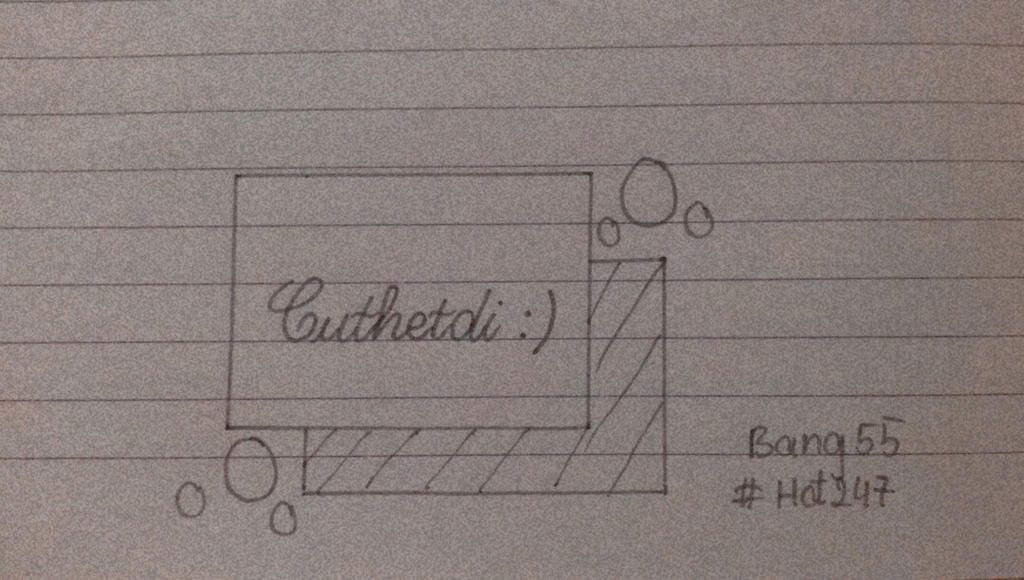 Cuthetdi :)
Bang55
# Hot247